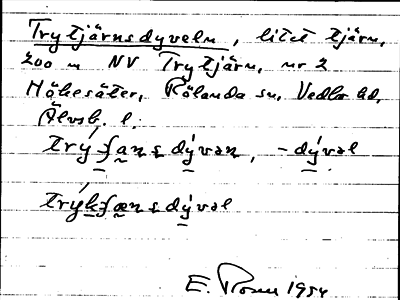 Trytjärnsdyveln, litet tjärn,
200 m NV Trytjärn, nr 2
Hökesäter, Rölanda sn, Vedbo hd,
Älvsb. l.
trý-ʃanṣdývən, -dývəl
trýkʃænṣdývəl
E. 1954